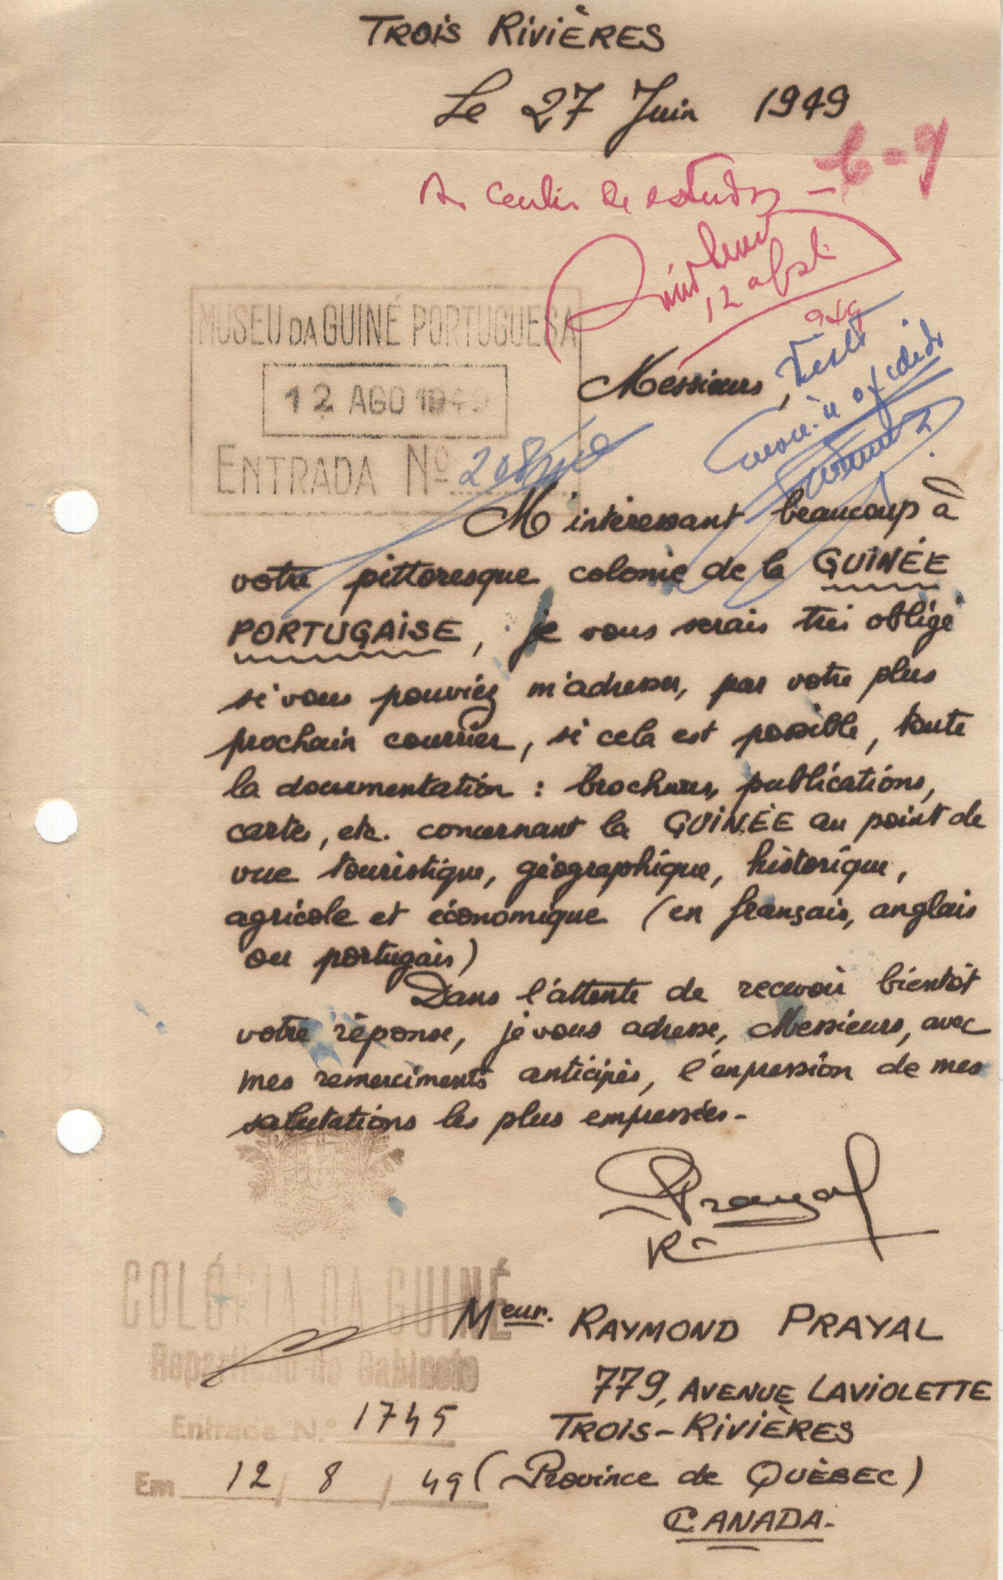 TROIS RIVIÈRES
Le 27 Juin 1949
C-9
de estudos -
12
949
MUSEU DA GUINÉ PORTUGUESA
12 AGO 194
ENTRADA Nº
Messieurs,
M'interessant beaucoup à
votre pittoresque colonie de la GUINÉE
PORTUGAISE, je vous serais très obligé
si vous pouviez m'adresser, par votre plus
prochain courrier, si cela est possible, toute
la documentation : brochures, publications,
cartes, etc. concernant la GUINÉE au point de
vue touristique, géographique, historique,
agricole et économique (en français, anglais
ou portugais)
Dans l'attente de recevoir bientôt
votre réponse, je vous adresse, Messieurs, avec
mes remerciments anticipés, l'expression de mes
salutations les plus empressées -
Prayal
R
COLÓNIA DA GUINÉ
Repartição do Gabinete
Meur. RAYMOND PRAYAL
779, AVENUE LAVIOLETTE
Entrada N.º 1745
TROIS-RIVIÈRES
Em 12 / 8 / 49
(Province de QUÈBEC)
CANADA.